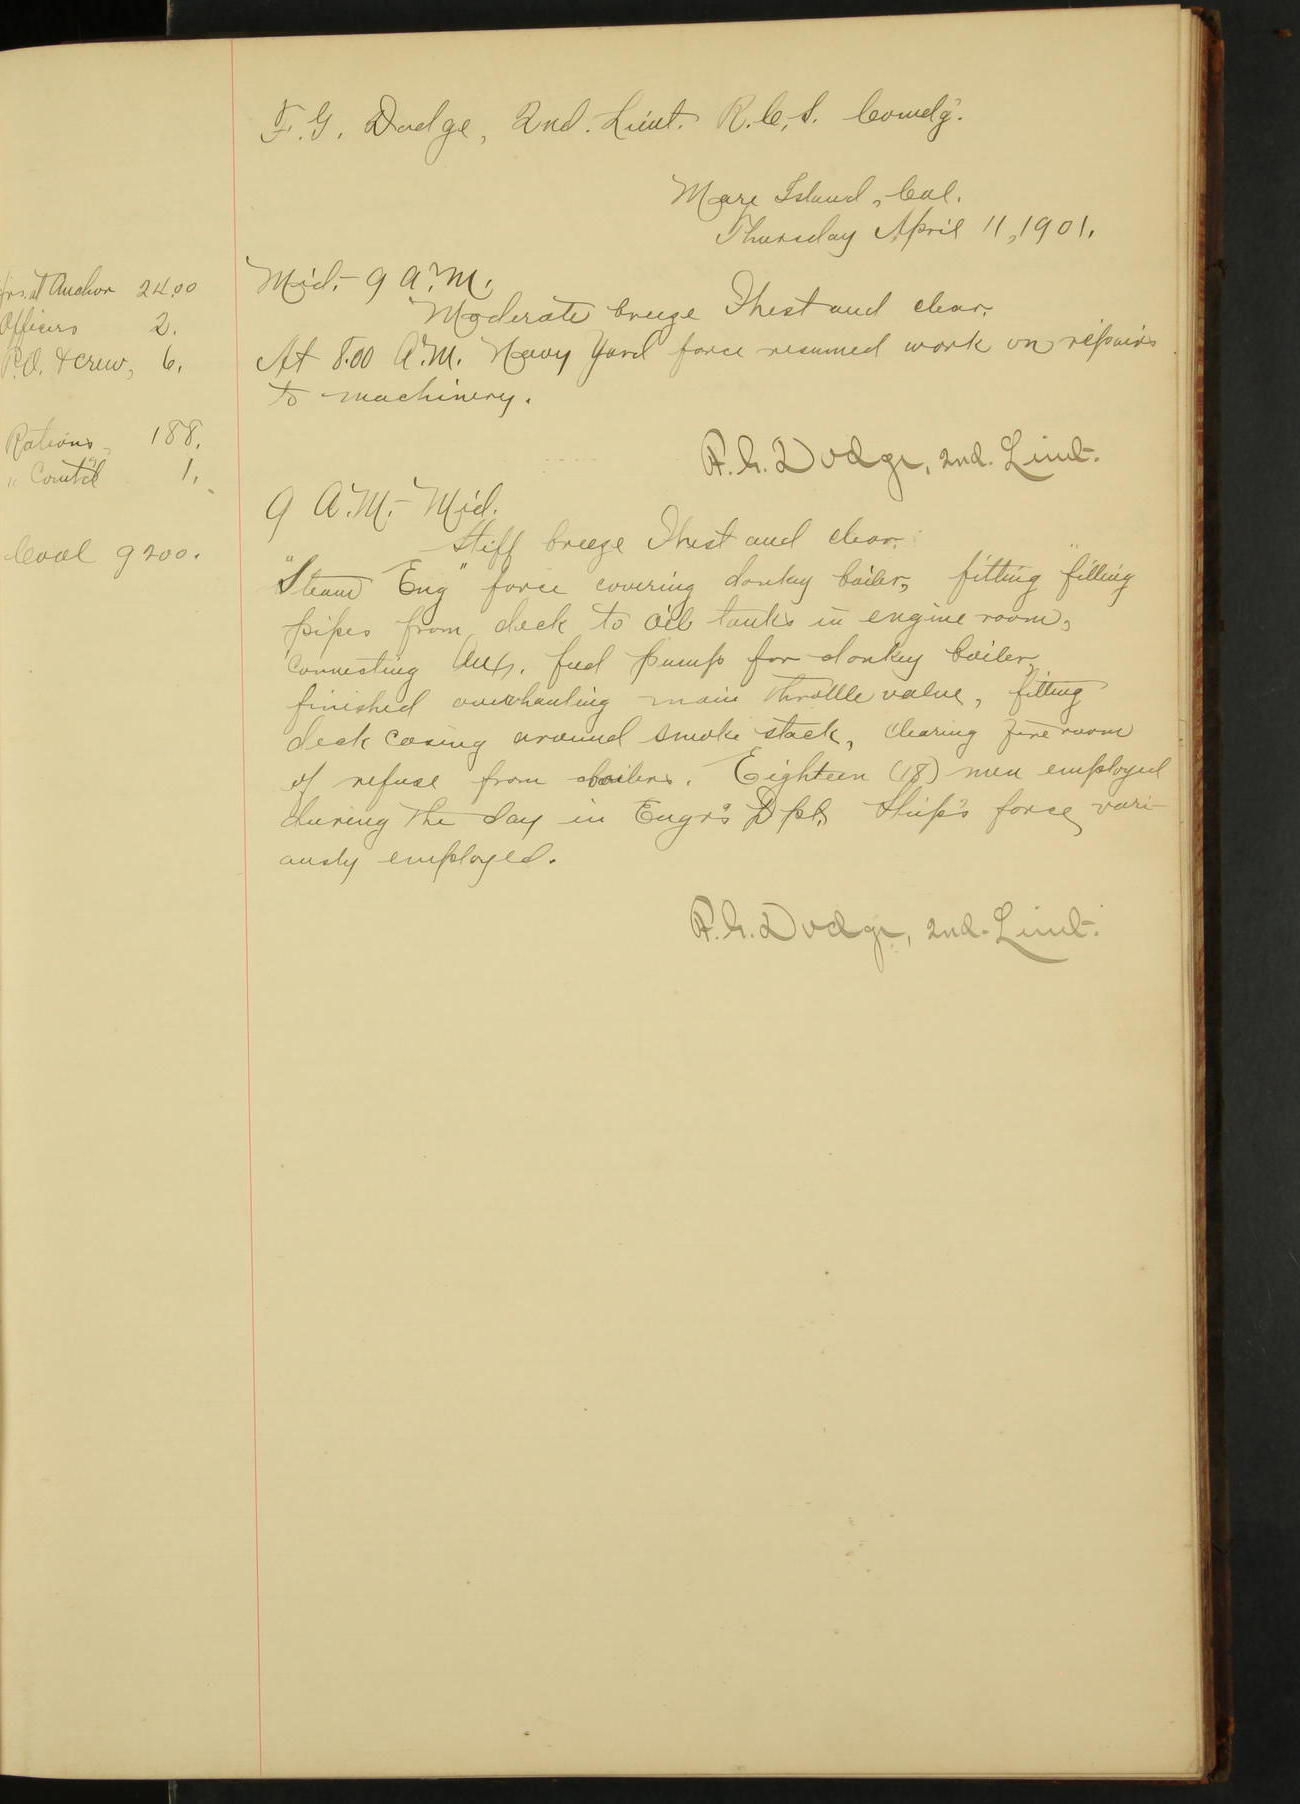 F. G. Dodge, 2nd. Lieut. R.C.S. Comdg.
Mare Island, Cal.
Thursday April 11, 1901.
Hrs. at Anchor 24.00
Officers 2.
P.O. & crew, 6.
Rations, 188.
" Comt'd 1.
Coal 9200.
Mid. - 9 A.M.
Moderate breeze West and clear.
At 8.00 A.M. Navy Yard force resumed work on repairs
to machinery.
F. G. Dodge, 2nd. Lieut.
9 A.M. - Mid.
Stiff breeze West and clear.
"Steam Eng" force covering donkey boiler, fitting filling
pipes from deck to oil tanks in engine room,
connecting Aux. feed pump for donkey boiler,
finished overhauling main throttle valve, fitting
deck casing around smoke stack, clearing fire room
of refuse from boilers. Eighteen (18) men employed
during the day in Engr's Dpt. Ship's force vari-
ously employed.
F. G. Dodge, 2nd. Lieut.